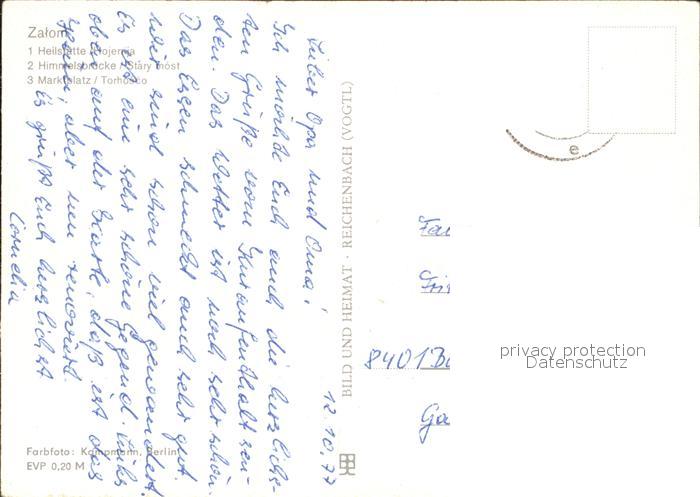 Žalom
1 Heilstätte / Hojernja
2 Himmelsbrücke / Stary most
3 Marktplatz / Torhošćo
12.10.77
Lieber Opa und Oma!
Ich möchte Euch auch die herzlich-
sten Grüße vom Kuraufenthalt sen-
den. Das Wetter ist noch sehr schön.
Das Essen schmeckt auch sehr gut.
Wir sind schon viel gewandert.
Es ist eine sehr schöne Gegend. Links
oben auf der Karte, daß ist das
Heim, aber neu renoviert.
Es grüßt Euch herzlichst
Cornelia
Farbfoto: Kampmann, Berlin
EVP 0,20 M
BILD UND HEIMAT · REICHENBACH (VOGTL)
e
Fa
8401 B
Ga
privacy protection
Datenschutz